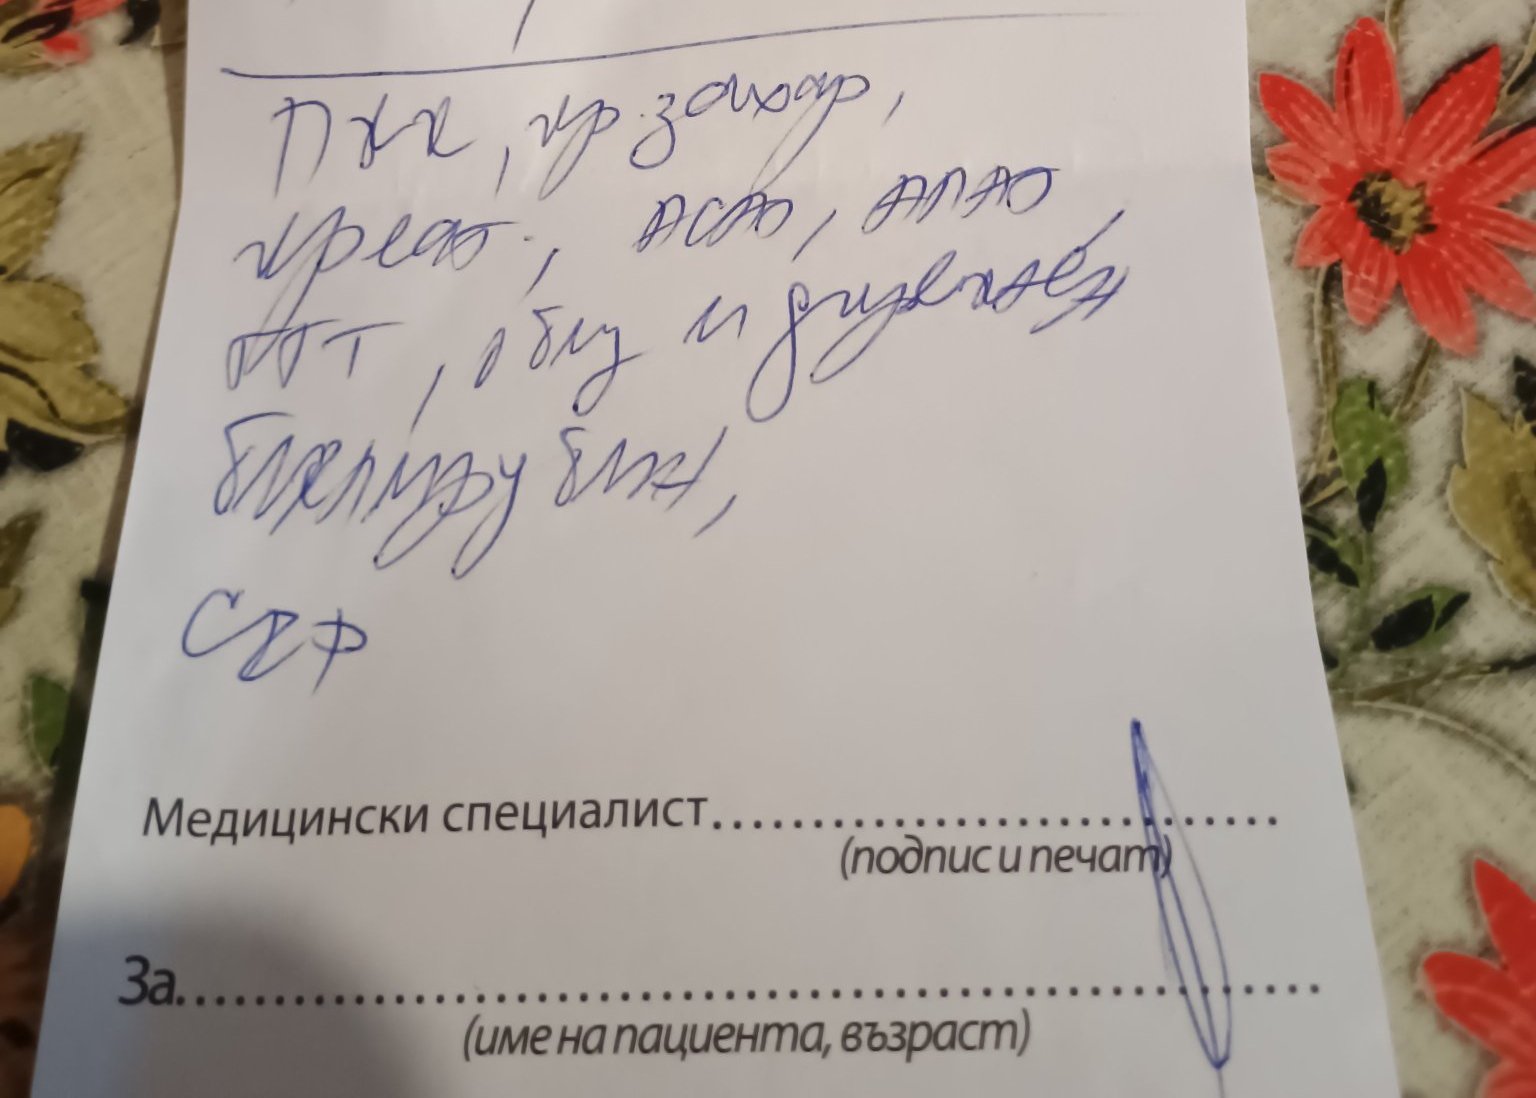 ПКК, кр. захар,
креат., АСАТ, АЛАТ,
ГГТ, общ и директен
билирубин,
CRP
Медицински специалист..............................
(подпис и печат)
За..............................................................
(име на пациента, възраст)